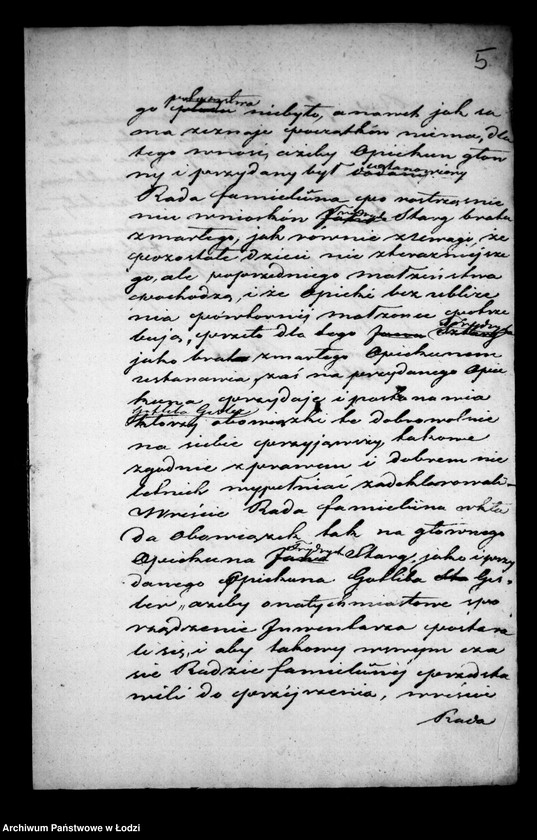 5
połączenia
go niebyło, a nawet jak sa
ma zeznaje początków niema, dla
tego wnosi, ażeby Opiekun głów
ny i przydany był ustanowiony
Rada familijna po roztrząśnie
niu wniosków Frydryk Stang brata
zmarłego, jak równie z uwagi, że
pozostałe dzieci nie z teraźniejsze
go, ale poprzedniego małżeństwa
pochodzą, i że Opieki bez ubliże
nia powtórnej małżonce potrze
bują, przeto dla tego Frydryka
jako brata zmarłego Opiekunem
ustanawia, zaś na przydanego Opie
kuna przydaję i postanawia
Gottliba Gisler
którzy obowiązki te dobrowolnie
na siebie przyjąwszy takowe
zgodnie z prawem i dobrem nie
letnich wypełniać zadeklarowali
Wreście Rada familijna wkła
da Obowiązek tak na głównego
Opiekuna Frydryk Stang, jako i przy
danego Opiekuna Gottliba Gis-
ler, ażeby o natychmiastowe spo
rządzenie Inwentarza postara
li się, i aby takowy w swym cza
sie Radzie familijnej przedsta
wili do przejrzenia, wreście
Rada
Archiwum Państwowe w Łodzi